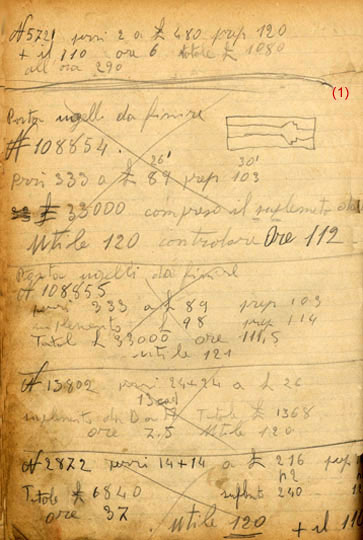 N 572 pezzi 2 a £ 480 prep 120
+ il 110 ore 6 totale £ 1080
all ora 290
(1)
Porta ugelli da finire
N 108854.
26' 30'
pezzi 333 a £ 89 prep 103
£ 33000 compreso il suplemento
Utile 120 controlare Ore 112
Porta ugelli da finire
N 108855
pezzi 333 a £ 89 prep 103
suplemento £ 98 prep 114
Total £ 33000 ore 111,5
Utile 121
N 13802 pezzi 24+24 a £ 26
suplemento da Totale £ 1368
ore 7.5 Utile 120
N 2872 pezzi 14+14 a £ 216 prep
Totale £ 6840 suplto 240
ore 37
Utile 120 + il